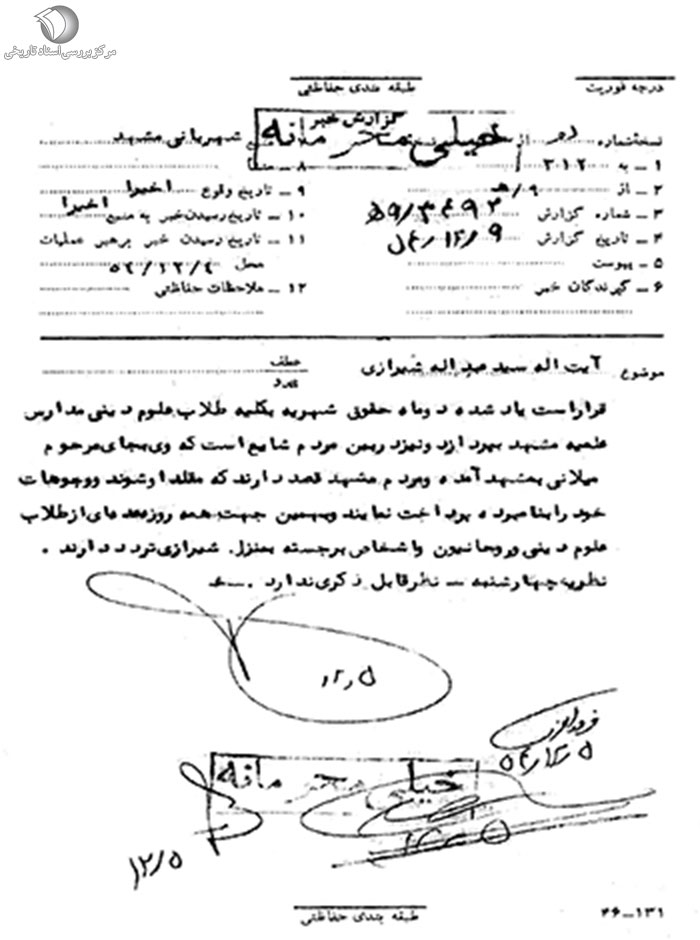 مرکز بررسی اسناد تاریخی
درجه فوریت
طبقه بندی حفاظتی
گزارش خبر
خیلی محرمانه
نسخه شماره از
شهربانی مشهد
۱ - به ۳۱۲
۸ - منشأ
۲ - از ۹/ھ
۹ - تاریخ وقوع اخیرا
۳ - شماره گزارش
۱۰ - تاریخ رسیدن خبر به منبع اخیرا
۴ - تاریخ گزارش ۵۴/۱۲/۹
۱۱ - تاریخ رسیدن خبر برهبر عملیات
۵ - پیوست
محل ۵۴/۱۲/۴
۶ - گیرندگان خبر
۱۲ - ملاحظات حفاظتی
موضوع آیت اله سید عبداله شیرازی
عطف
پیرو
قراراست یاد شده دوماه حقوق شهریه بکلیه طلاب علوم دینی مدارس
علمیه مشهد بپردازد ونیزد ربین مردم شایع است که وی بجای مرحوم
میلانی بمشهد آمده ومردم مشهد قصد دارند که مقلد اوشوند ووجوهات
خود را بنامبرده پرداخت نمایند وبهمین جهت همه روزه عده ای از طلاب
علوم دینی وروحانیون واشخاص برجسته بمنزل شیرازی تردد دارند .
نظریه چهارشنبه - نظر قابل ذکری ندارد .
۱۲٫۵
۵۴٫۱۲٫۵
خیلی محرمانه
۱۲٫۵
طبقه بندی حفاظتی
۴۶-۱۳۱